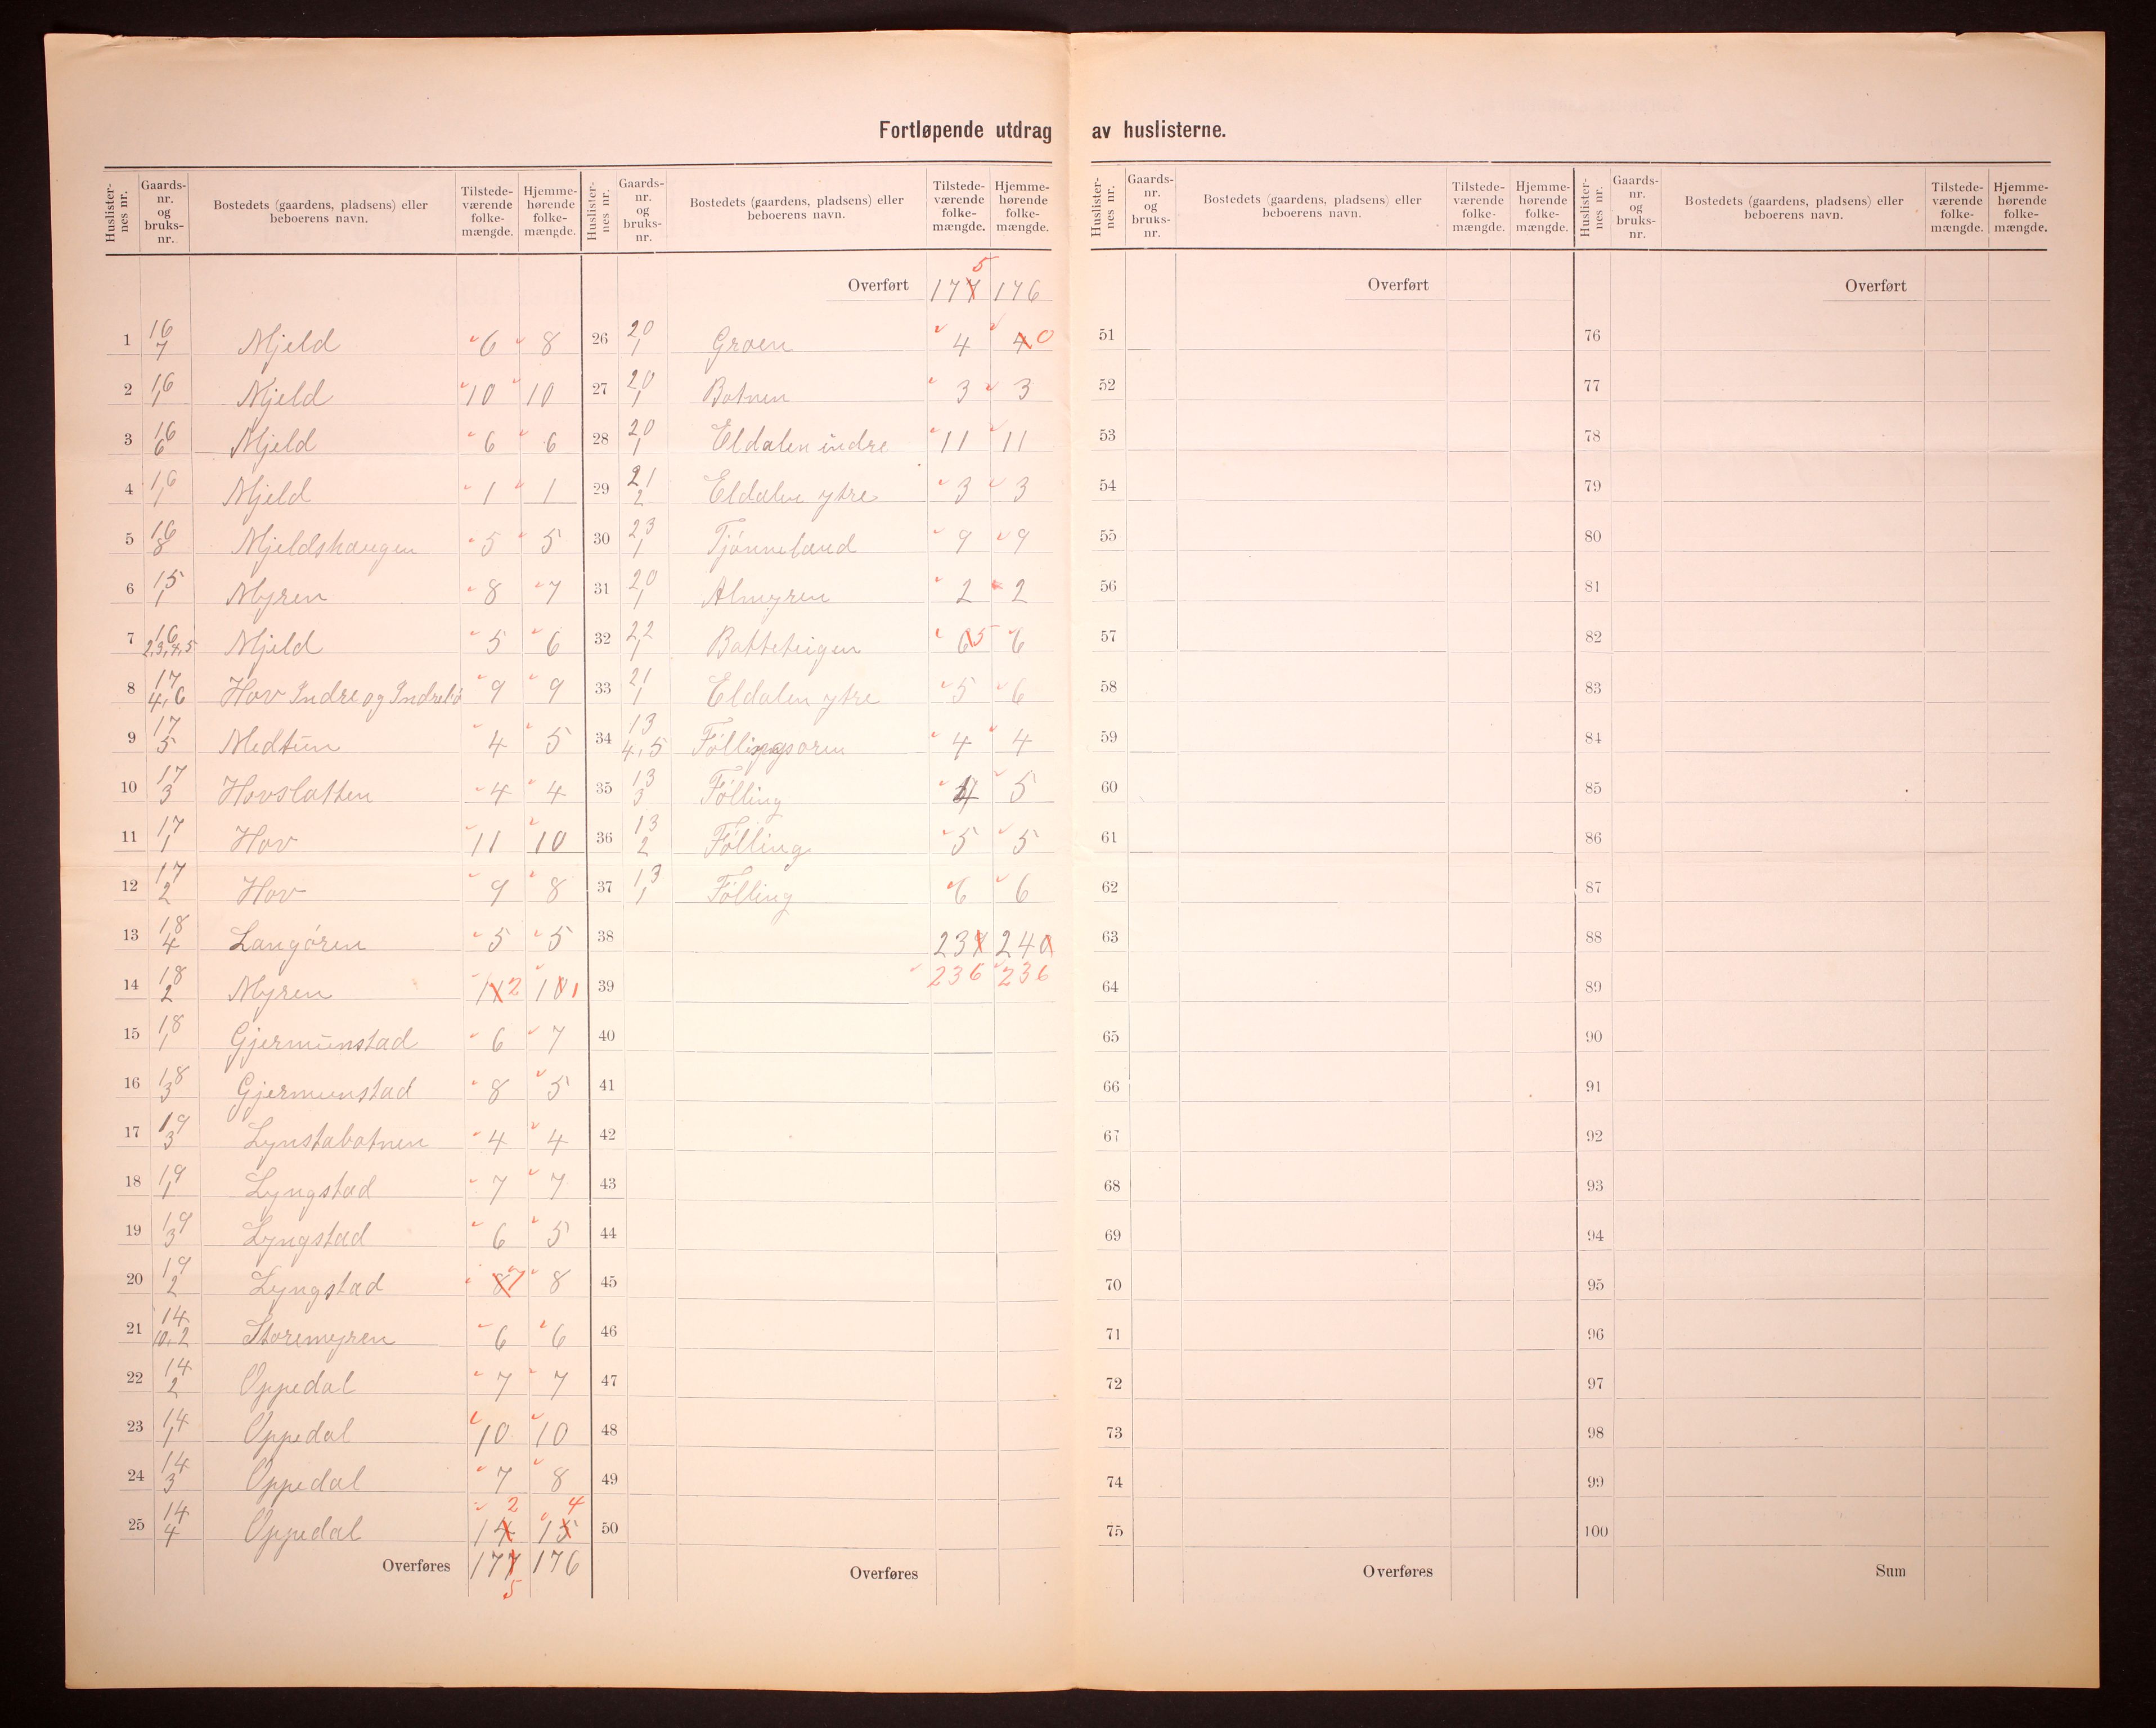 Fortløpende utdrag av huslisterne.
Huslister-nes nr. Gaards-nr. og bruks-nr. Bostedets (gaardens, pladsens) eller beboerens navn. Tilstede-værende folke-mængde. Hjemme-hørende folke-mængde.
1 16/7 Mjeld 6 8
2 16/1 Mjeld 10 10
3 16/6 Mjeld 6 6
4 16/1 Mjeld 1 1
5 16/8 Mjeldshaugen 5 5
6 15/1 Myren 8 7
7 16/2,3,4,5 Mjeld 5 6
8 17/4,6 Hov Indre og Indrelid 9 9
9 17/5 Medtun 4 5
10 17/3 Hovslatten 4 4
11 17/1 Hov 11 10
12 17/2 Hov 9 8
13 18/4 Langøren 5 5
14 18/2 Myren 11 2 10 1
15 18/1 Gjermunstad 6 7
16 18/3 Gjermunstad 8 5
17 19/3 Lynstabotnen 4 4
18 19/1 Lyngstad 7 7
19 19/3 Lyngstad 6 5
20 19/2 Lyngstad 8 7 8
21 14/10,2 Storemyren 6 6
22 14/2 Oppedal 7 7
23 14/1 Oppedal 10 10
24 14/3 Oppedal 7 8
2 4
25 14/4 Oppedal 14 15
Overføres 177 176
5
Huslister-nes nr. Gaards-nr. og bruks-nr. Bostedets (gaardens, pladsens) eller beboerens navn. Tilstede-værende folke-mængde. Hjemme-hørende folke-mængde.
5
Overført 177 176
26 20/1 Groen 4 4 0
27 20/1 Botnen 3 3
28 20/1 Eldalen indre 11 11
29 21/2 Eldalen ytre 3 3
30 23/1 Tjønneland 9 9
31 20/1 Almyren 2 2
32 22/1 Batteteigen 6 5 6
33 21/1 Eldalen ytre 5 6
34 13/4,5 Føllingsoren 4 4
35 13/3 Følling 4 5
36 13/2 Følling 5 5
37 13/1 Følling 6 6
38 239 240
39 236 236
40
41
42
43
44
45
46
47
48
49
50
Overføres
Huslister-nes nr. Gaards-nr. og bruks-nr. Bostedets (gaardens, pladsens) eller beboerens navn. Tilstede-værende folke-mængde. Hjemme-hørende folke-mængde.
Overført
51
52
53
54
55
56
57
58
59
60
61
62
63
64
65
66
67
68
69
70
71
72
73
74
75
Overføres
Huslister-nes nr. Gaards-nr. og bruks-nr. Bostedets (gaardens, pladsens) eller beboerens navn. Tilstede-værende folke-mængde. Hjemme-hørende folke-mængde.
Overført
76
77
78
79
80
81
82
83
84
85
86
87
88
89
90
91
92
93
94
95
96
97
98
99
100
Sum